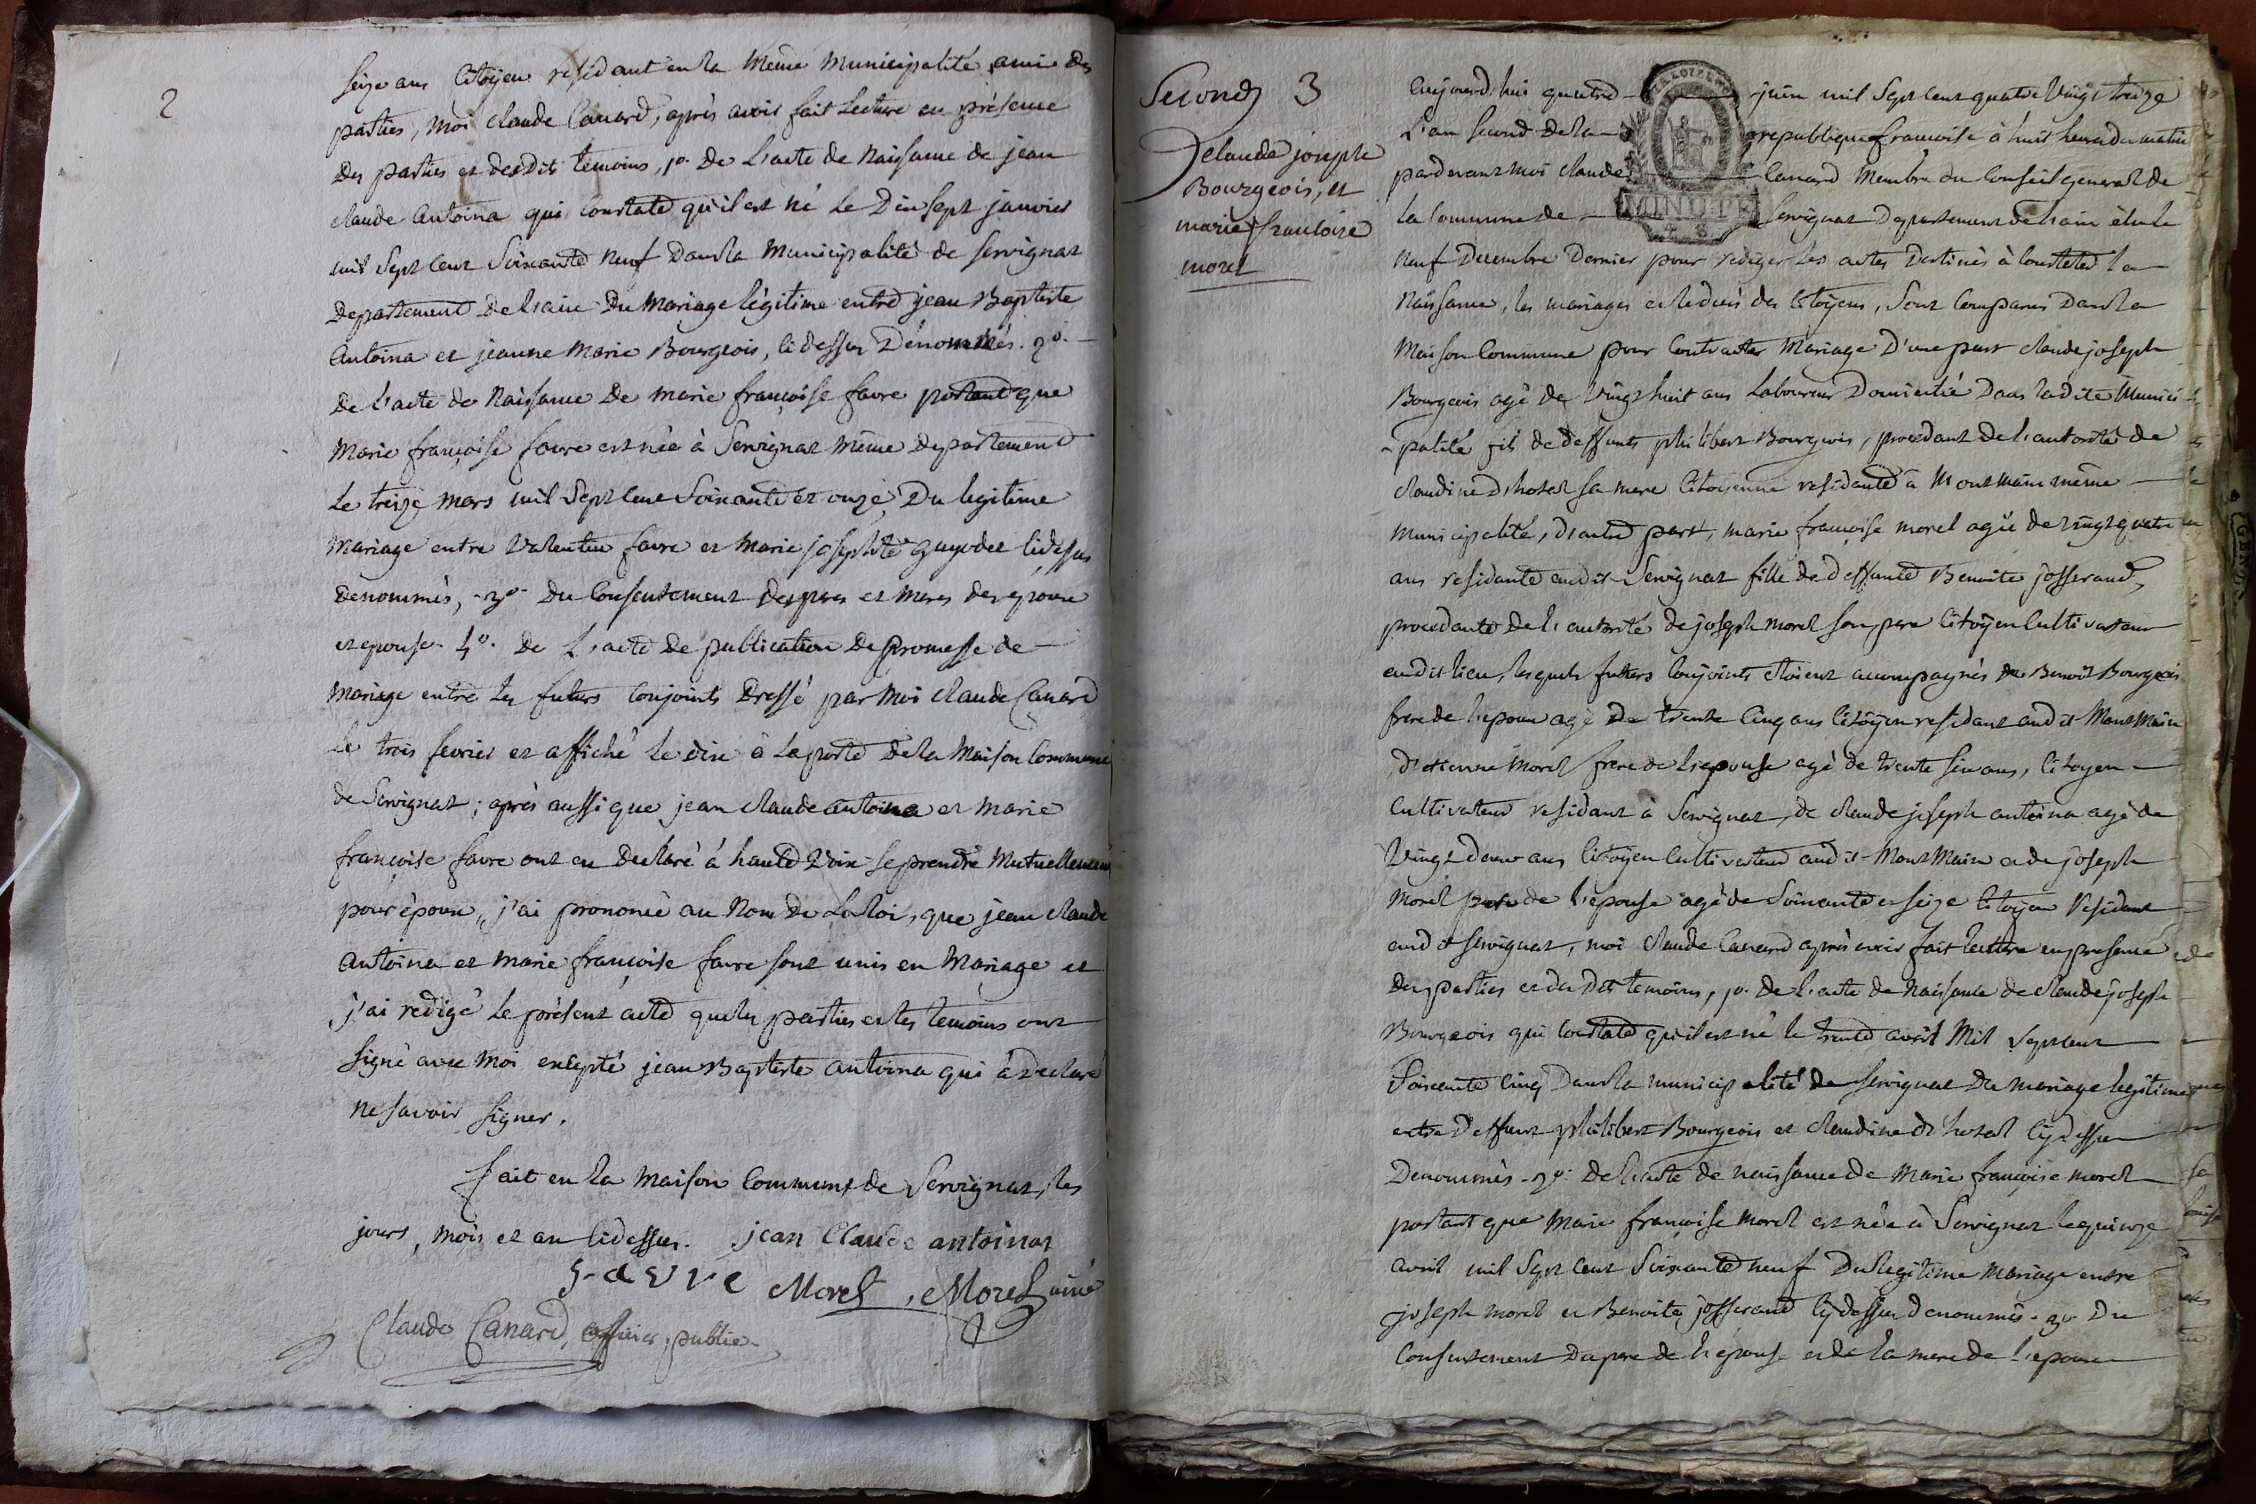 2
seize ans Citoÿen residant en la même Municipalité ami des
parties, moi claude Canard, après avoir fait Lecture en présence
des parties et desdits temoins, 1º. De L'acte de Naissance de jean
claude antoina qui constate qu'il est né Le Dix sept janvier
mil sept cent soixante neuf dans la Municipalité de servignat
departement de L'ain du mariage légitime entre jean Baptiste
antoina et jeanne Marie Bourgeois, cidessus Dénommés. 2º.
De L'acte de Naissance De marie françoise favre portant que
Marie françoise favre est née à Servignat même departement
Le treize mars mil sept cent soixante et onze, Du legitime
Mariage entre Valentin favre et Marie josephte guyodet cidessus
denommés, 3º. Du Consentement des peres et meres des époux
et epouse 4º. De L'acte de publication de promesse de
Mariage entre les futurs conjoints Dressé par Moi claude Canard
le trois fevrier et affiché Le dix à la porte de la Maison Commune
de Servignat; après aussi que jean claude antoina et marie
françoise favre ont eu declaré à haute Voix se prendre Mutuellement
pour époux, j'ai prononcé au Nom De La loi, que jean claude
antoina et marie françoise favre sont unis en Mariage et
j'ai redigé Le présent acte que les parties et les temoins ont
signé avec Moi excepté jean Baptiste antoina qui a declaré
ne savoir signer.
fait en la Maison Commune de Servignat, les
jours, mois et an cidessus. jean Claude antoinat
favre Morel, Morel ainé
Claude Canard, officier, public
Second 3
claude joseph
Bourgeois, et
marie francoise
morel
MINUTE
aujourd'hui quatre juin mil Sept Cent quatre Vingt treize
L'an second de la republique françoise à huit heures du matin
pardevant moi claude Canard Membre du Conseil general de
la Commune de Servignat departement de L'ain élu le
Neuf Decembre Dernier pour rediger les actes destinés à constater la
Naissance, les mariages et le decès des Citoÿens, sont Comparus Dans la
Maison Commune pour Contracter Mariage D'une part claude joseph
Bourgeois agé de Vingt huit ans Laboureur Domicilié dans ladite Munici
palité fils de deffunts philibert Bourgeois, procedant de L'autorité de
claudine d'hotel sa mere Citoyenne residante à Montmain même
municipalité, d'autre part, marie françoise morel agée de vingt quatre
ans residante audit Servignat fille de deffunte Benoite josserand,
procedante de L'autorité de joseph morel son pere Citoÿen Cultivateur
audit lieu, lesquels futurs Conjoints étoient accompagnés de Benoit Bourgeois
frere de l'epoux agé de trente Cinq ans Citoÿen residant audit Montmain
d'etienne Morel frere de L'epouse agé de trente six ans, Citoyen
Cultivateur residant à Servignat, de claude joseph antoina agé de
Vingt deux ans Citoÿen Cultivateur audit Montmain et de joseph
Morel pere de l'epouse agé de soixante et seize Citoÿen residant
audit Servignat, moi claude Canard après avoir fait lecture en presence
des parties et des dits temoins, 1º. De L'acte de Naissance de claude joseph
Bourgeois qui constate qu'il est né le trente avril Mil Sept cent
soixante cinq dans la municipalité de servignat du mariage legitime
entre deffunt philibert Bourgeois et claudine d'hotel cydessus
denommés. 2º. De L'acte de naissance de Marie françoise morel
portant que Marie françoise Morel est née à Servignat le quinze
avril mil sept cent soixante neuf du legitime Mariage entre
joseph morel et Benoite josserand cydessus denommés. 3º. Du
Consentement du pere de l'épouse et de la mere de l'epoux